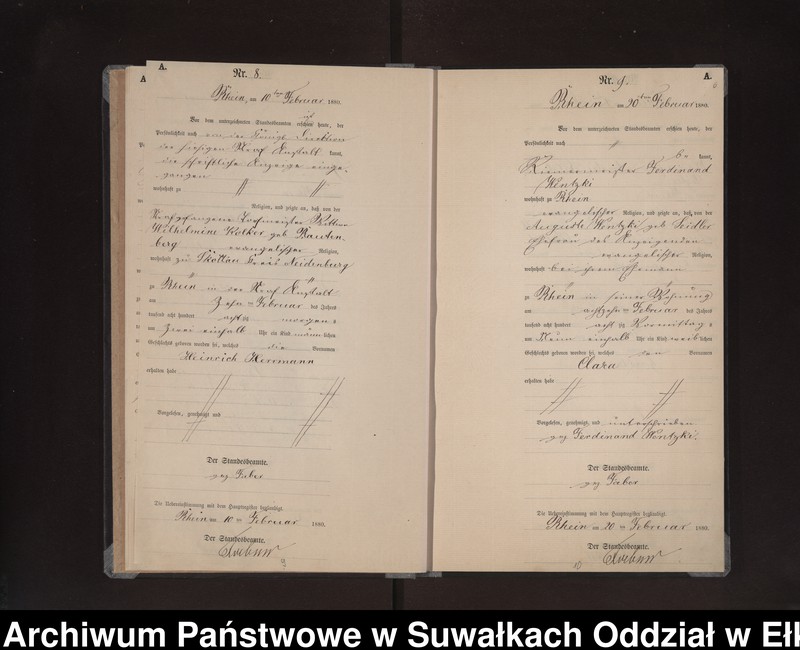 A.
A
Nr. 8.
Rhein, am 10ten Februar 1880.
Vor dem unterzeichneten Standesbeamten erschien heute, der
Persönlichkeit nach von der Königl. Direktion
der hiesigen Straf Anstalt kannt,
die schriftliche Anzeige einge-
gangen
wohnhaft zu
Religion, und zeigte an, daß von der
Strafgefangene Losmeister Wittwe
Wilhelmine Kolker geb Bauden-
berg evangelischer Religion,
wohnhaft zu Skottau Kreis Neidenburg
zu Rhein in der Straf Anstalt
am zehnten Februar des Jahres
tausend acht hundert achtzig morgens
um zwei einhalb Uhr ein Kind männlichen
Geschlechts geboren worden sei, welches die Vornamen
Heinrich Herrmann
erhalten habe
Vorgelesen, genehmigt und
Der Standesbeamte.
gez Faber
Die Uebereinstimmung mit dem Hauptregister beglaubigt.
Rhein am 10ten Februar 1880.
Der Standesbeamte.
Nr. 9.
A.
Rhein am 20ten Februar 1880.
Vor dem unterzeichneten Standesbeamten erschien heute, der
Persönlichkeit nach
be kannt,
Riemermeister Ferdinand
Wentzki
wohnhaft zu Rhein
evangelischer Religion, und zeigte an, daß von der
Auguste Wentzki geb Seidler
Ehefrau des Anzeigenden
evangelischer Religion,
wohnhaft bei ihrem Ehemann
zu Rhein in seiner Wohnung
am achtzehnten Februar des Jahres
tausend acht hundert achtzig Vormittags
um Neun einhalb Uhr ein Kind weiblichen
Geschlechts geboren worden sei, welches den Vornamen
Clara
erhalten habe
Vorgelesen, genehmigt und unterschrieben
gez Ferdinand Wentzki.
Der Standesbeamte.
gez Faber
Die Uebereinstimmung mit dem Hauptregister beglaubigt.
Rhein am 20ten Februar 1880.
Der Standesbeamte.
Archiwum Państwowe w Suwałkach Oddział w Ełk